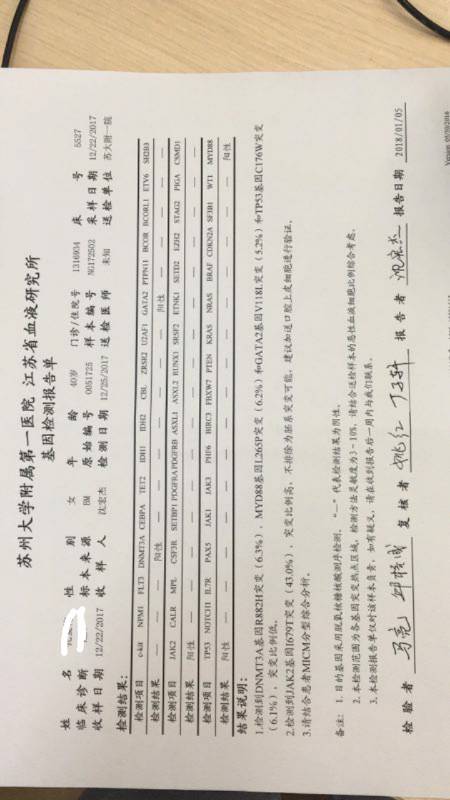 苏州大学附属第一医院 江苏省血液研究所
基因检测报告单
姓 名 性 别 女 年 龄 40岁 门诊/住院号 1316934 床 号 5527
临床诊断 标本来源 BM 原始编号 0051725 样本编号 NG172502 采样日期 12/22/2017
收样日期 12/22/2017 收 样 人 沈宏杰 检测日期 12/25/2017 送检医师 未知 送检单位 苏大附一院
检测结果:
检测项目 c-kit NPM1 FLT3 DNMT3A CEBPA TET2 IDH1 IDH2 CBL ZRSR2 U2AF1 GATA2 PTPN11 BCOR BCORL1 ETV6 SH2B3
检测结果 — — — 阳性 — — — — — — — 阳性 — — — — —
检测项目 JAK2 CALR MPL CSF3R SETBP1 PDGFRA PDGFRB ASXL1 ASXL2 RUNX1 SRSF2 ETNK1 SETD2 EZH2 STAG2 PIGA CSMD1
检测结果 阳性 — — — — — — — — — — — — — — — —
检测项目 TP53 NOTCH1 IL7R PAX5 JAK1 JAK3 PHF6 BIRC3 FBXW7 PTEN KRAS NRAS BRAF CDKN2A SF3B1 WT1 MYD88
检测结果 阳性 — — — — — — — — — — — — — — — 阳性
结果说明:
1.检测到DNMT3A基因R882H突变(6.3%)、MYD88基因L265P突变(6.2%)和GATA2基因V118L突变(5.2%)和TP53基因C176W突变
(6.1%),突变比例低。
2.检测到JAK2基因I679T突变(43.0%),突变比例高,不排除为胚系突变可能,建议加送口腔上皮细胞进行验证。
3.请结合患者MICM分型综合分析。
备注: 1.目的基因采用脱氧核糖核酸测序检测。"—"代表检测结果为阴性。
2.本检测范围为各基因突变热点区域,检测方法灵敏度为5-10%,请结合送检样本的恶性血液细胞比例综合考虑。
3.本检测报告单仅对该样本负责,如有疑义,请在收到报告后一周内与我们联系。
检 验 者 复 核 者 报 告 者 报告日期 2018/01/05